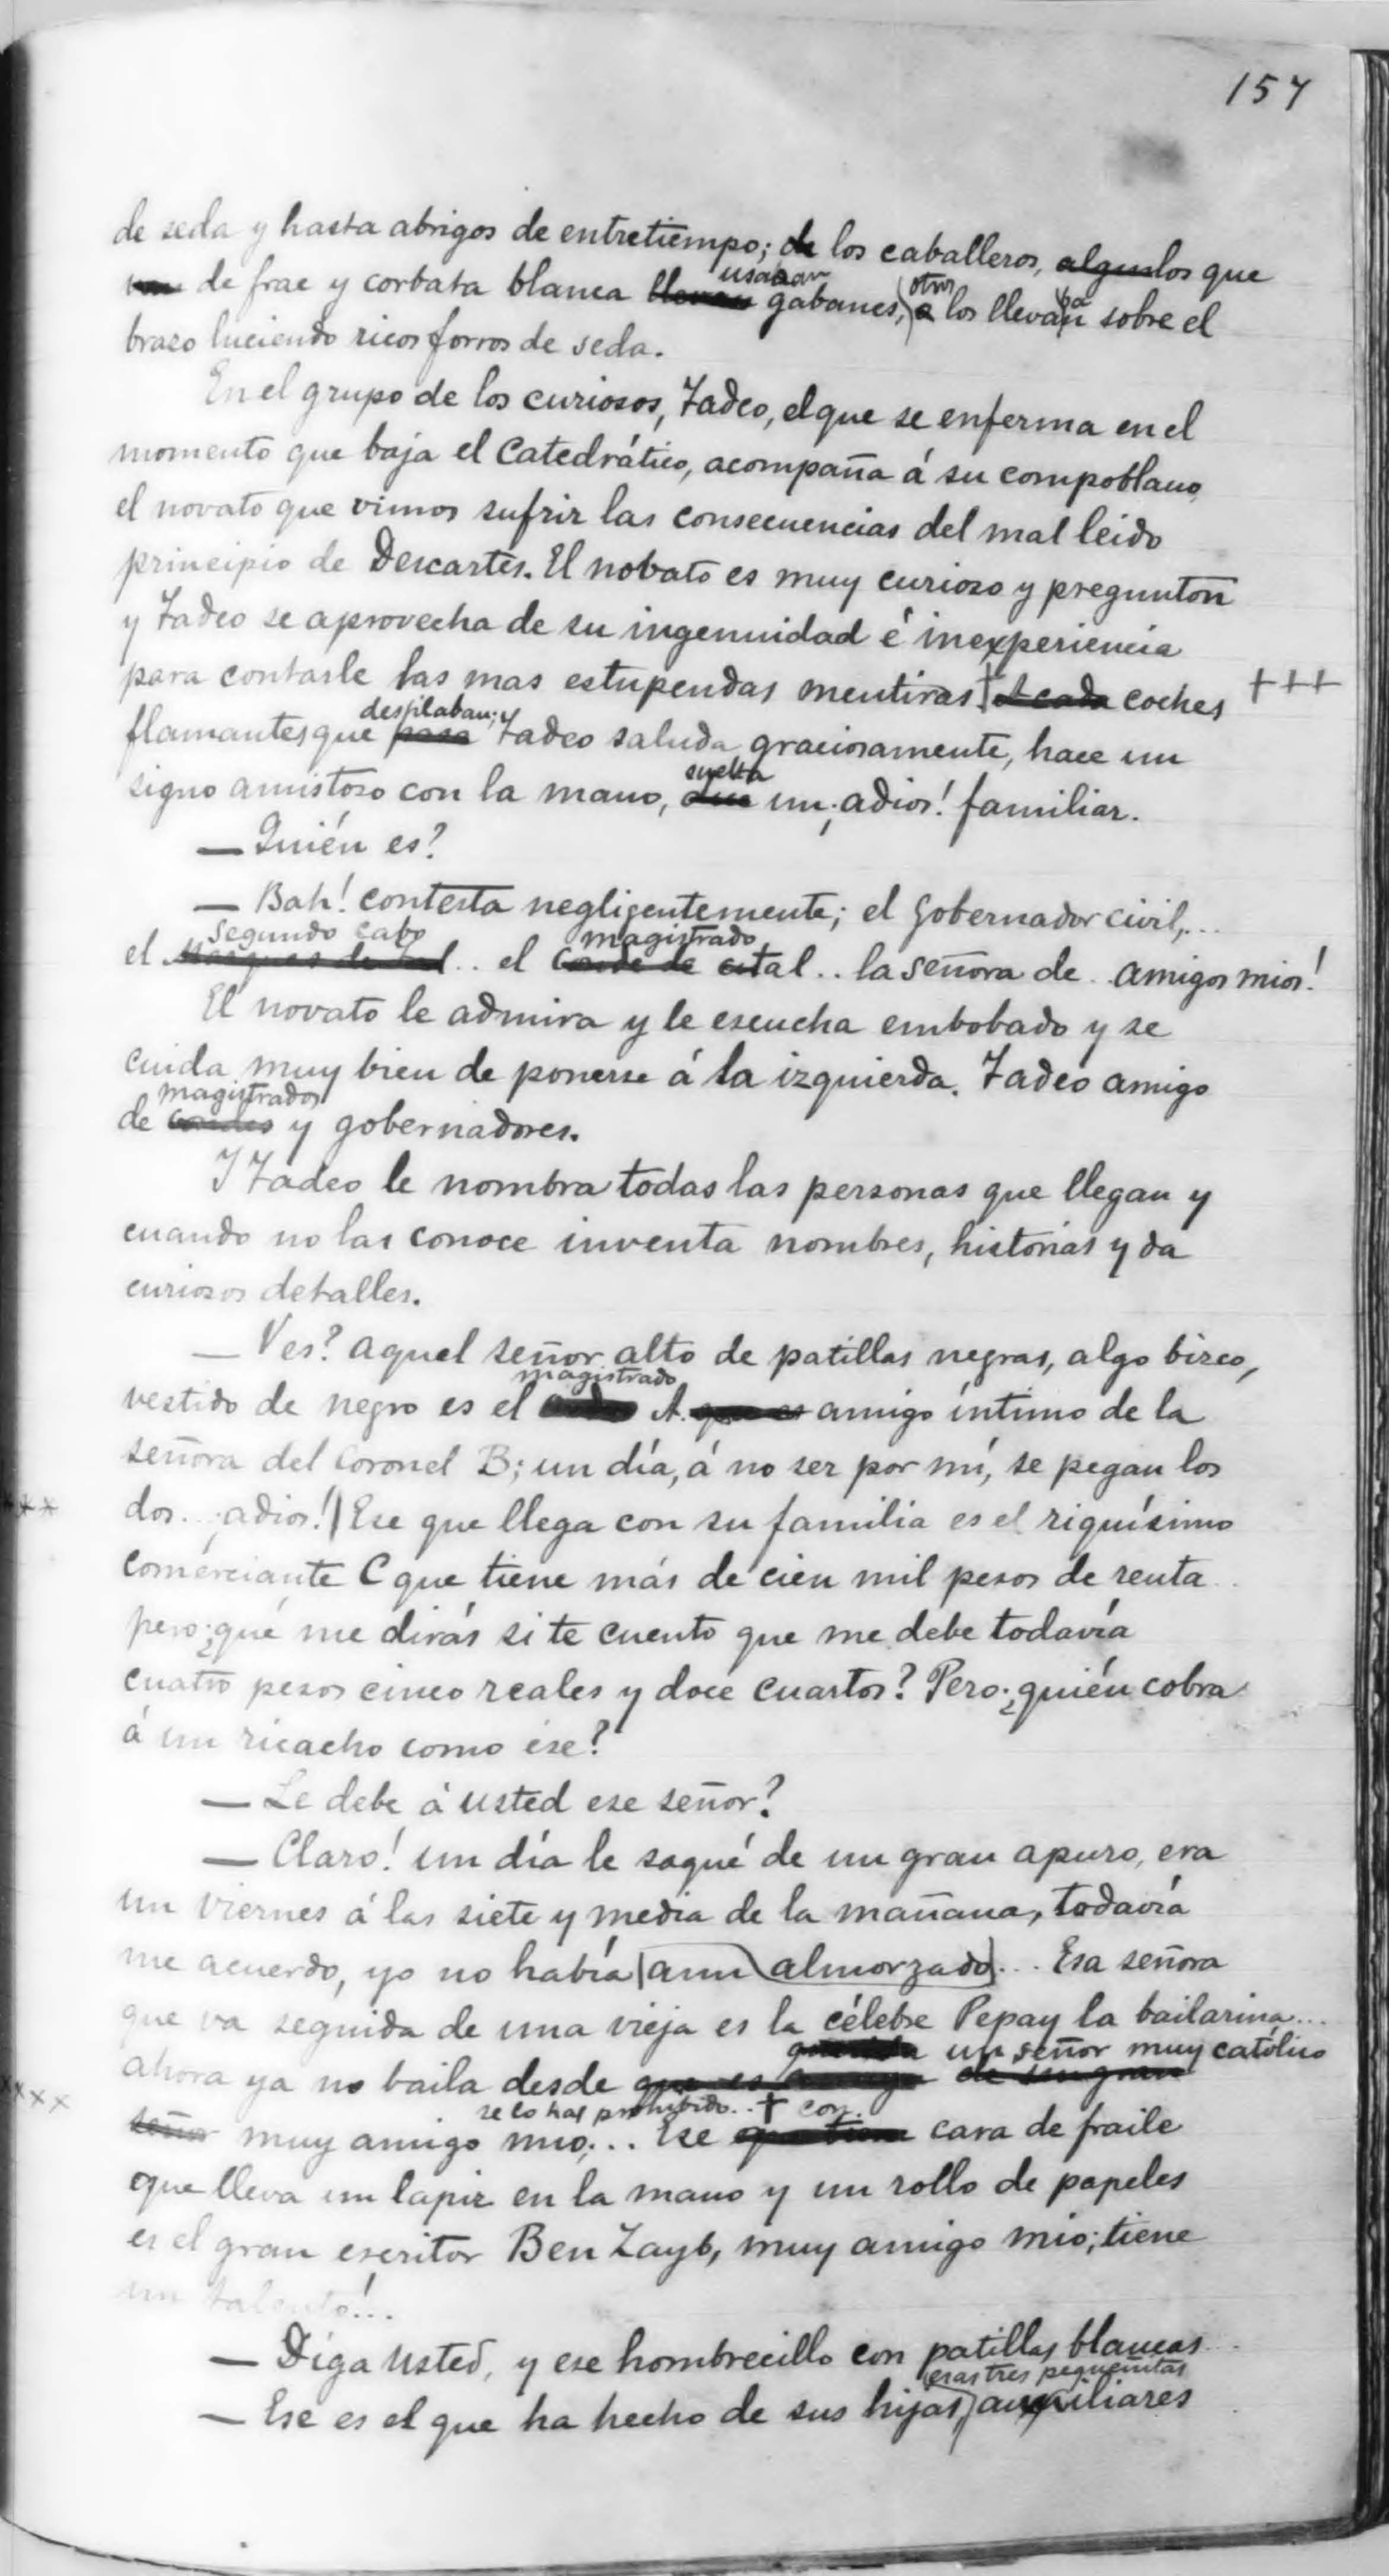 157
de seda y hasta abrigos de entretiempo; de los caballeros, algunos los que
van de frac y corbata blanca llevan usaban gabanes, otros los llevaban sobre el
brazo luciendo ricos forros de seda.
En el grupo de los curiosos, Tadeo, el que se enferma en el
momento que baja el Catedrático, acompaña á su compoblano,
el novato que vimos sufrir las consecuencias del mal leido
principio de Descartes. El nobato es muy curioso y pregunton
y Tadeo se aprovecha de su ingenuidad é inexperiencia
para contarle las mas estupendas mentiras. A cada coches +++
flamantes que pasa desfilaban; Tadeo saluda graciosamente, hace un
signo amistoso con la mano, suelta un ¡adios! familiar.
— Quién es?
— Bah! contesta negligentemente; el Gobernador civil,...
el Marques de tal Segundo cabo .. el Conde de magistrado tal .. la señora de .. amigos mios!
El novato le admira y le escucha embobado y se
cuida muy bien de ponerse á la izquierda. Tadeo amigo
de condes magistrados y gobernadores.
Y Tadeo le nombra todas las personas que llegan y
cuando no las conoce inventa nombres, historias y da
curiosos detalles.
— Ves? aquel señor alto de patillas negras, algo bizco,
vestido de negro es el magistrado A. que es amigo íntimo de la
señora del Coronel B; un día, á no ser por mí, se pegan los
xx dos... ¡adios! Ese que llega con su familia es el riquísimo
comerciante C que tiene más de cien mil pesos de renta..
pero ¿qué me dirás si te cuento que me debe todavía
cuatro pesos cinco reales y doce cuartos? Pero ¿quién cobra
á un ricacho como ese?
— Le debe á usted ese señor?
— Claro! un día le saqué de un gran apuro, era
un viernes á las siete y media de la mañana, todavía
me acuerdo, yo no había aun almorzado... Esa señora
que va seguida de una vieja es la célebre Pepay la bailarina...
xxx ahora ya no baila desde que es un señor muy católico de un gran
señor muy amigo mio se lo ha prohibido.. + ... Ese que tiene con cara de fraile
que lleva un lapiz en la mano y un rollo de papeles
es el gran escritor Ben Zayb, muy amigo mio; tiene
un talento!...
— Diga usted, y ese hombrecillo con patillas blancas..
— Ese es el que ha hecho de sus hijas, esas tres pequeñitas auxiliares